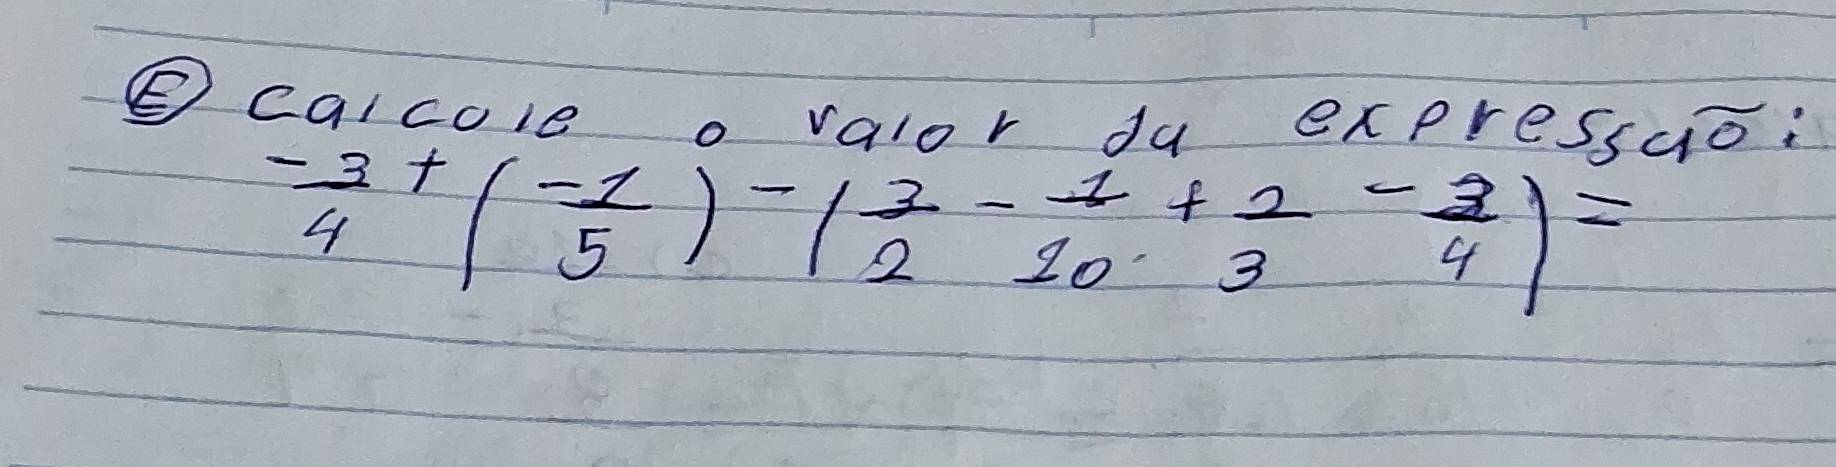 Ⓔ calcole o valor da expressão:
-3/4 + (-1/5) - (3/2 - 1/10 + 2/3 - 3/4) =